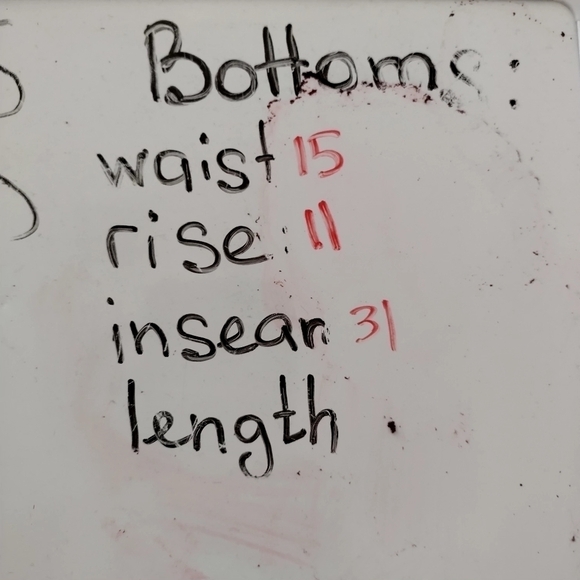 Bottoms:
waist 15
rise: 11
insean 31
length